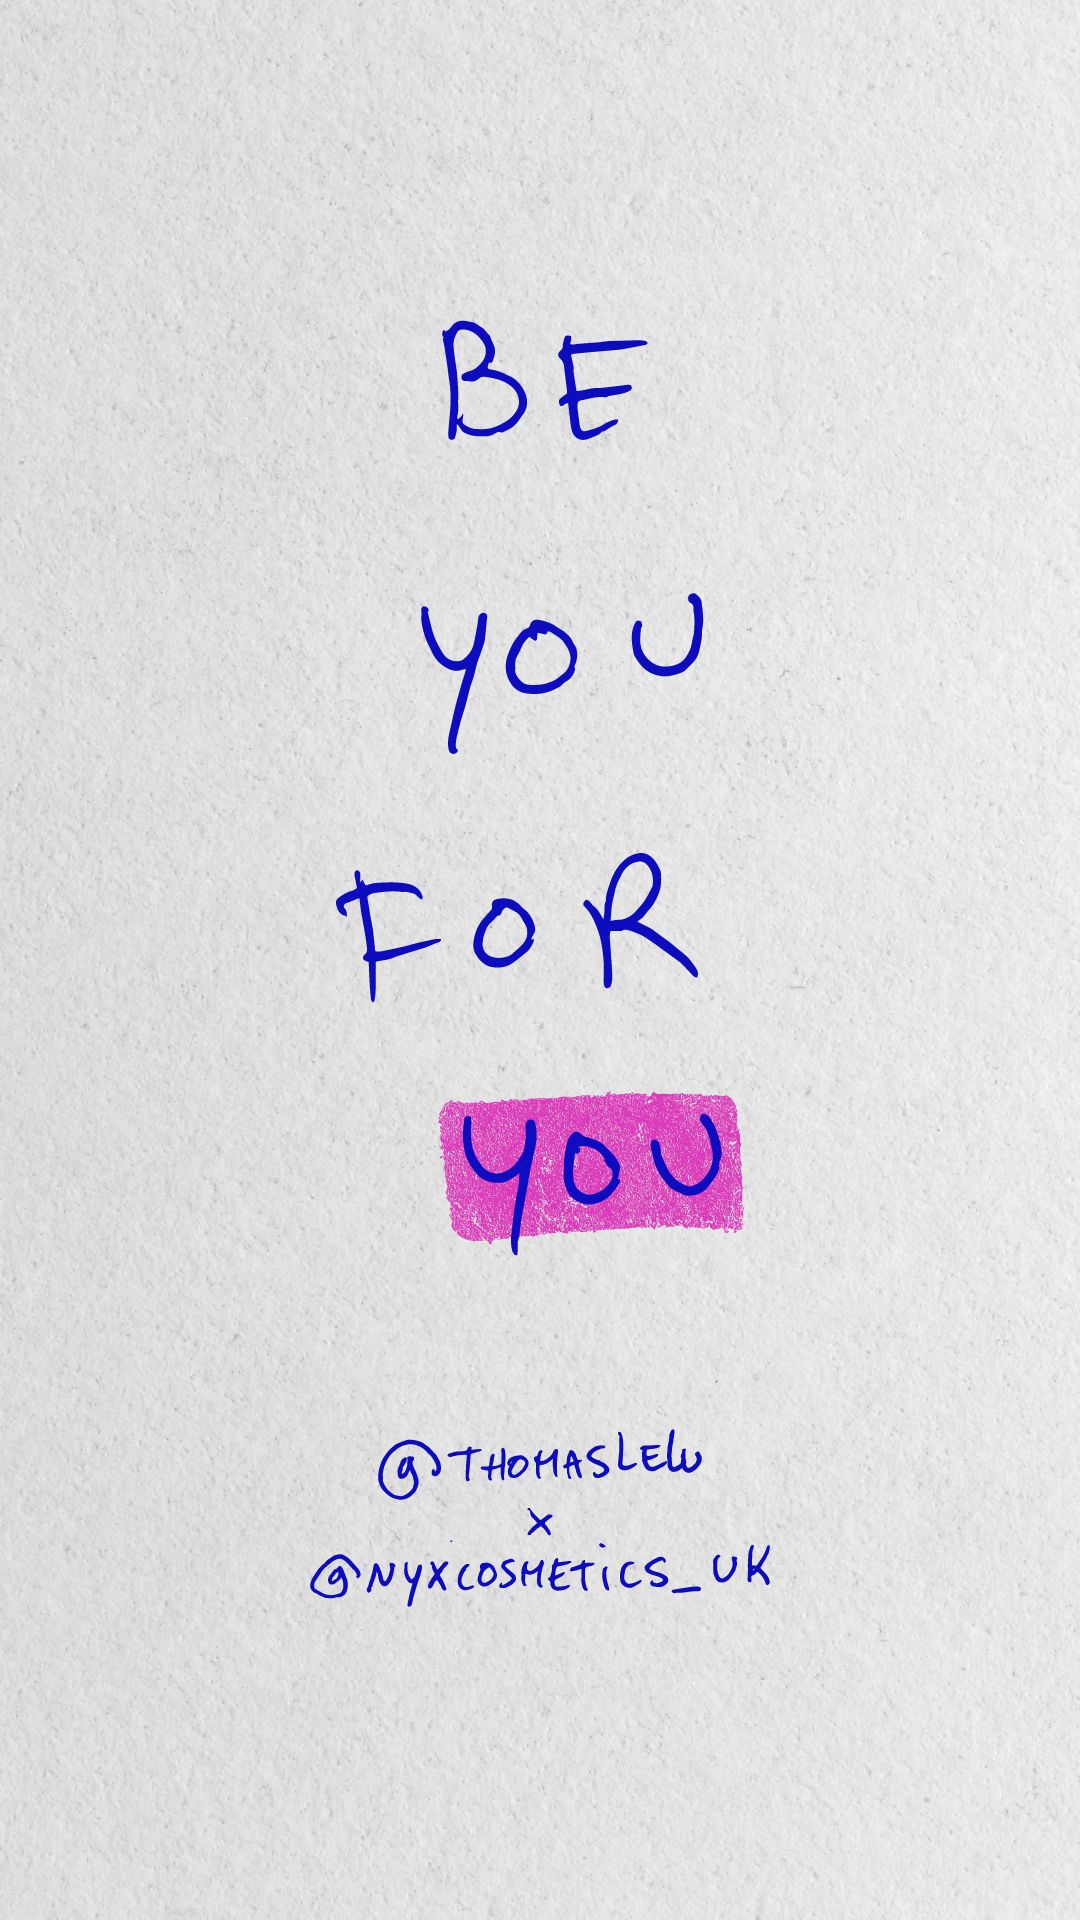 BE
YOU
FOR
YOU
@THOMASLELU
X
@NYXCOSMETICS_UK